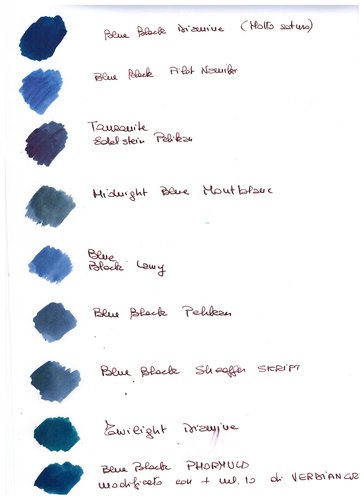 Blue Black Diamine (Molto saturo)
Blue Black Pilot Namiki
Tanzanite
Edelstein Pelikan
Midnight Blue Montblanc
Blue
Black Lamy
Blue Black Pelikan
Blue Black Sheaffer SKRIPT
Twilight Diamine
Blue Black PHORMULO
modificato con + ml. 10 di VERDIANGE